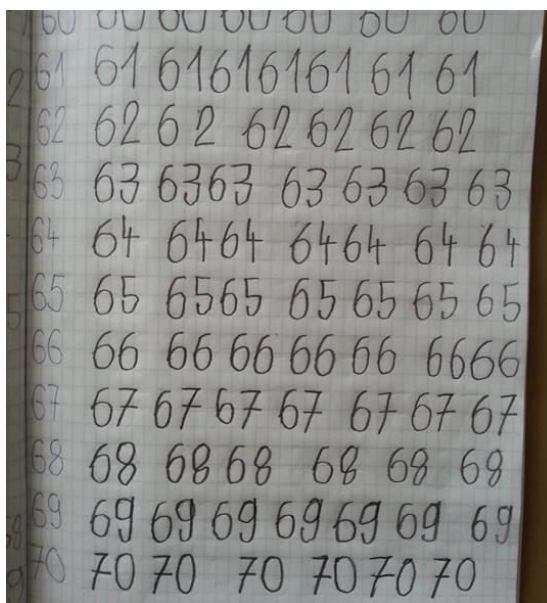 60 60 60 60 60 60 60
61 61 61 61 61 61 61
62 62 62 62 62 62 62
63 63 63 63 63 63 63 63
64 64 64 64 64 64 64 64
65 65 65 65 65 65 65 65
66 66 66 66 66 66 66 66
67 67 67 67 67 67 67 67
68 68 68 68 68 68 68
69 69 69 69 69 69 69 69
70 70 70 70 70 70 70